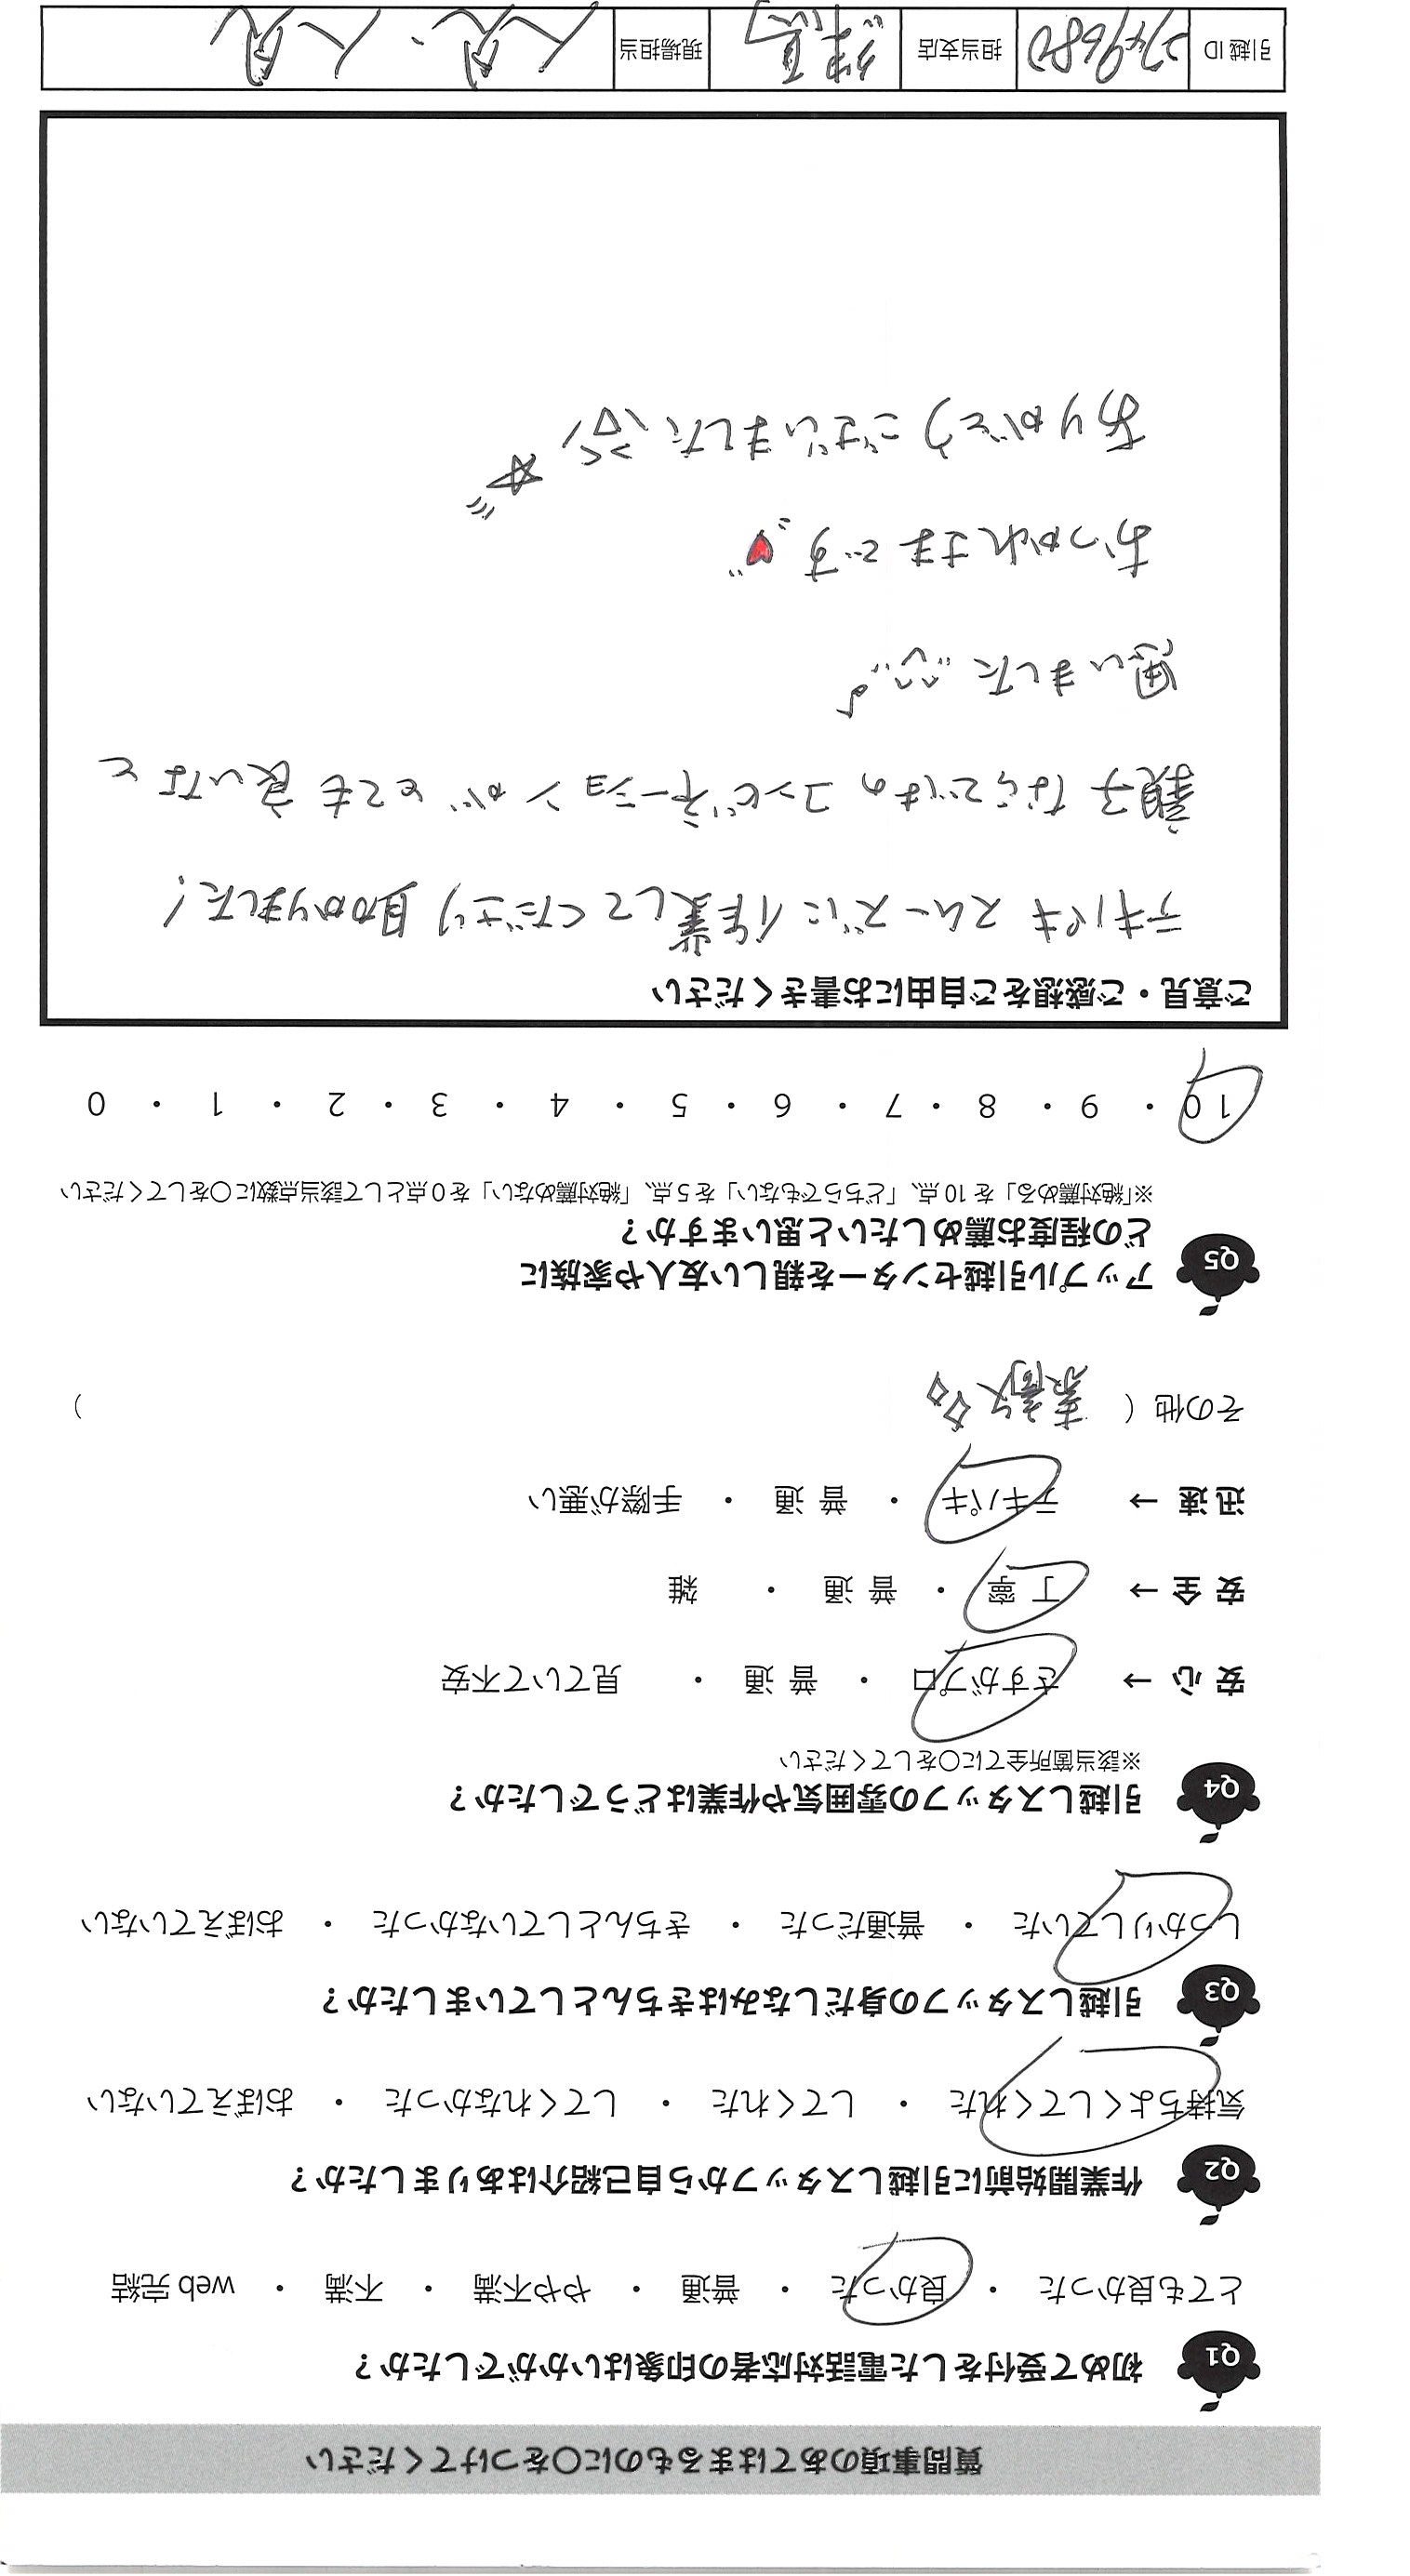 質問事項のあてはまるものに○をつけてください
Q1 初めて受付をした電話対応者の印象はいかがでしたか？
とても良かった ・ 良かった ・ 普通 ・ やや不満 ・ 不満 ・ web 完結
Q2 作業開始前に引越しスタッフから自己紹介はありましたか？
気持ちよくしてくれた ・ してくれた ・ してくれなかった ・ おぼえていない
Q3 引越しスタッフの身だしなみはきちんとしていましたか？
しっかりしていた ・ 普通だった ・ きちんとしていなかった ・ おぼえていない
Q4 引越しスタッフの雰囲気や作業はどうでしたか？
※該当箇所全てに○をしてください
安 心 → さすがプロ ・ 普 通 ・ 見ていて不安
安 全 → 丁 寧 ・ 普 通 ・ 雑
迅 速 → テキパキ ・ 普 通 ・ 手際が悪い
その他（ 素敵 ）
Q5 アップル引越センターを親しい友人や家族に
どの程度お薦めしたいと思いますか？
※「絶対薦める」を 10 点、「どちらでもない」を 5 点、「絶対薦めない」を 0 点として該当点数に○をしてください
10 ・ 9 ・ 8 ・ 7 ・ 6 ・ 5 ・ 4 ・ 3 ・ 2 ・ 1 ・ 0
ご意見・ご感想をご自由にお書きください
テキパキ スムーズに作業してくださり 助かりました！
親子ならではの コンビネーションが とても 良いなと
思いました ♪
おつかれさまです ♥
ありがとうございました ☆
引越 ID 2749680 担当支店 練馬 現場担当